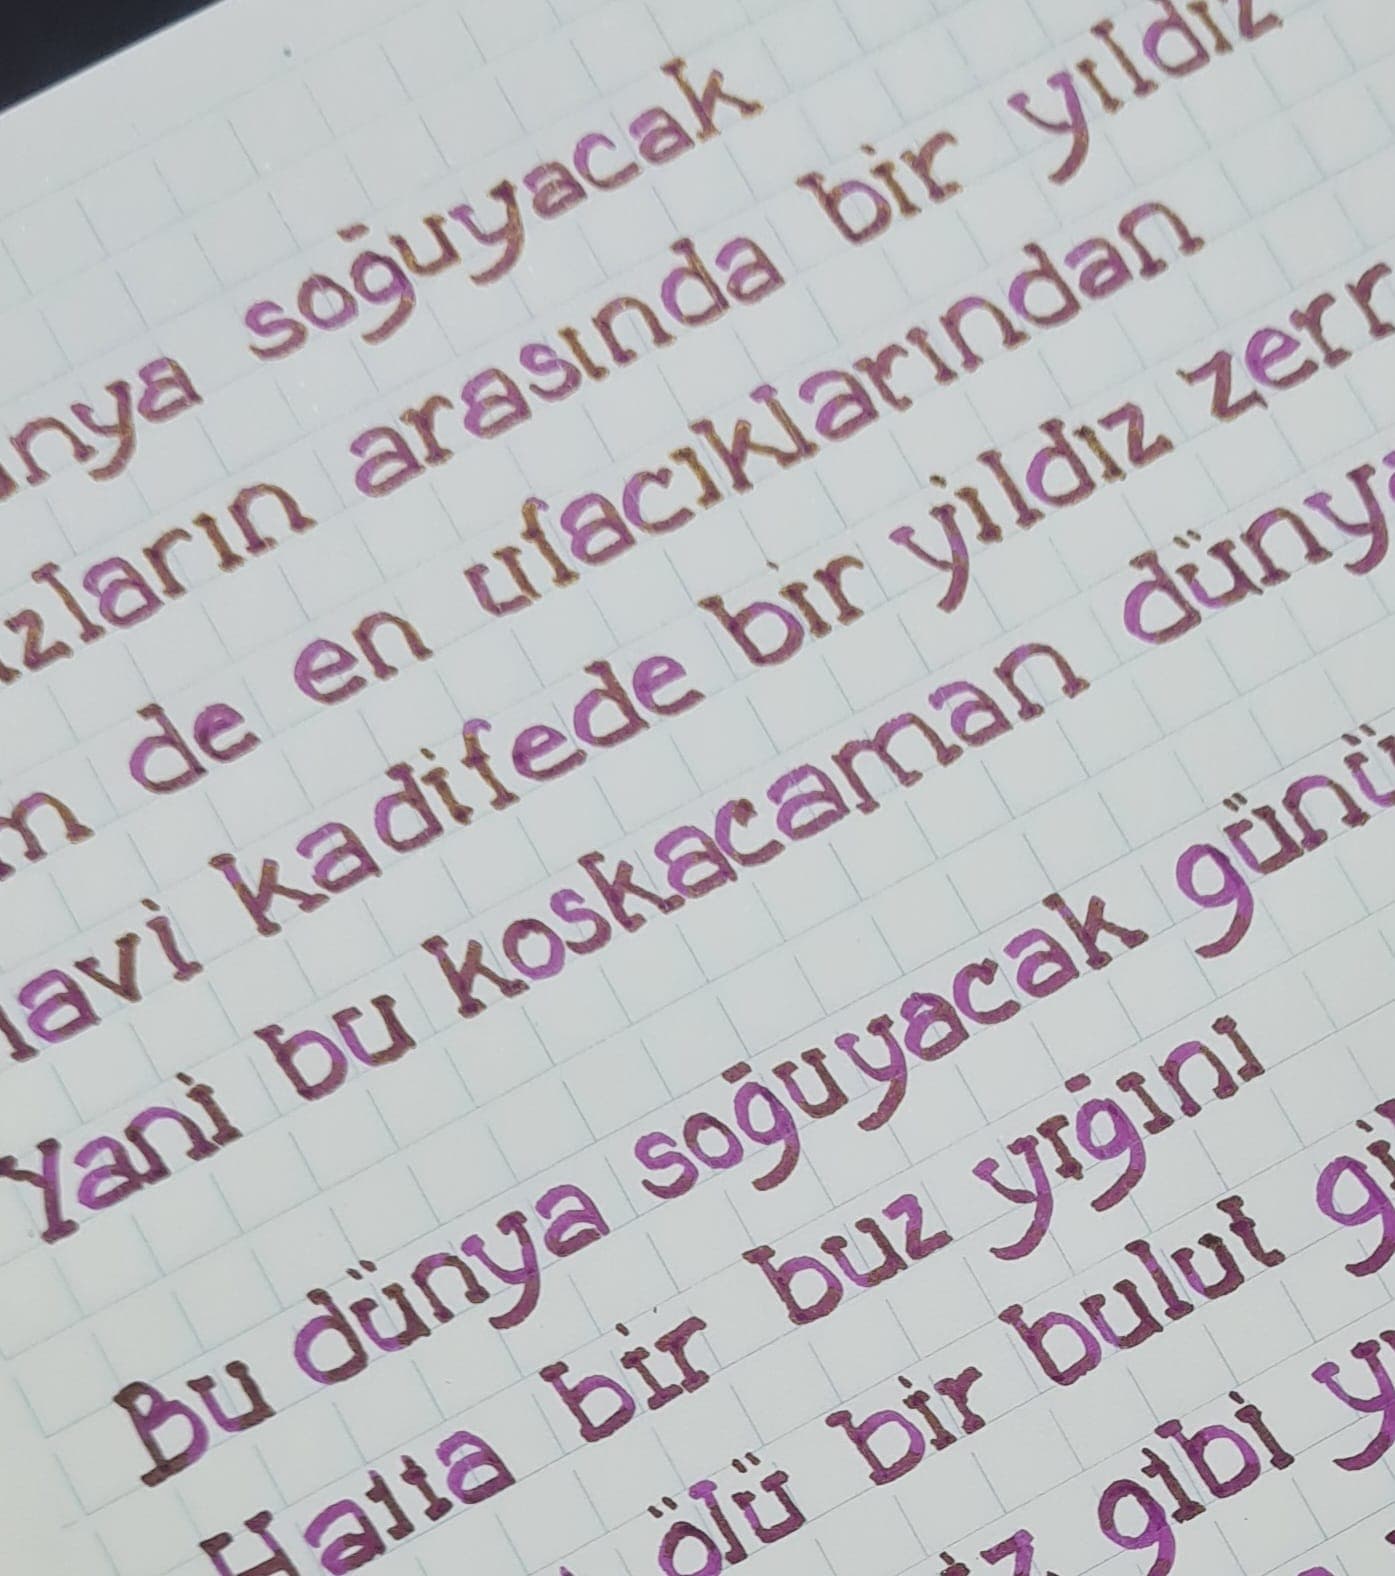 nya soğuyacak
zların arasında bir yıldız
m de en ufacıklarından
lavi kadifede bir yıldız zerr
Yani bu koskacaman dünya
Bu dünya soğuyacak günü
Hatta bir buz yığını
ölü bir bulut gi
gibi y